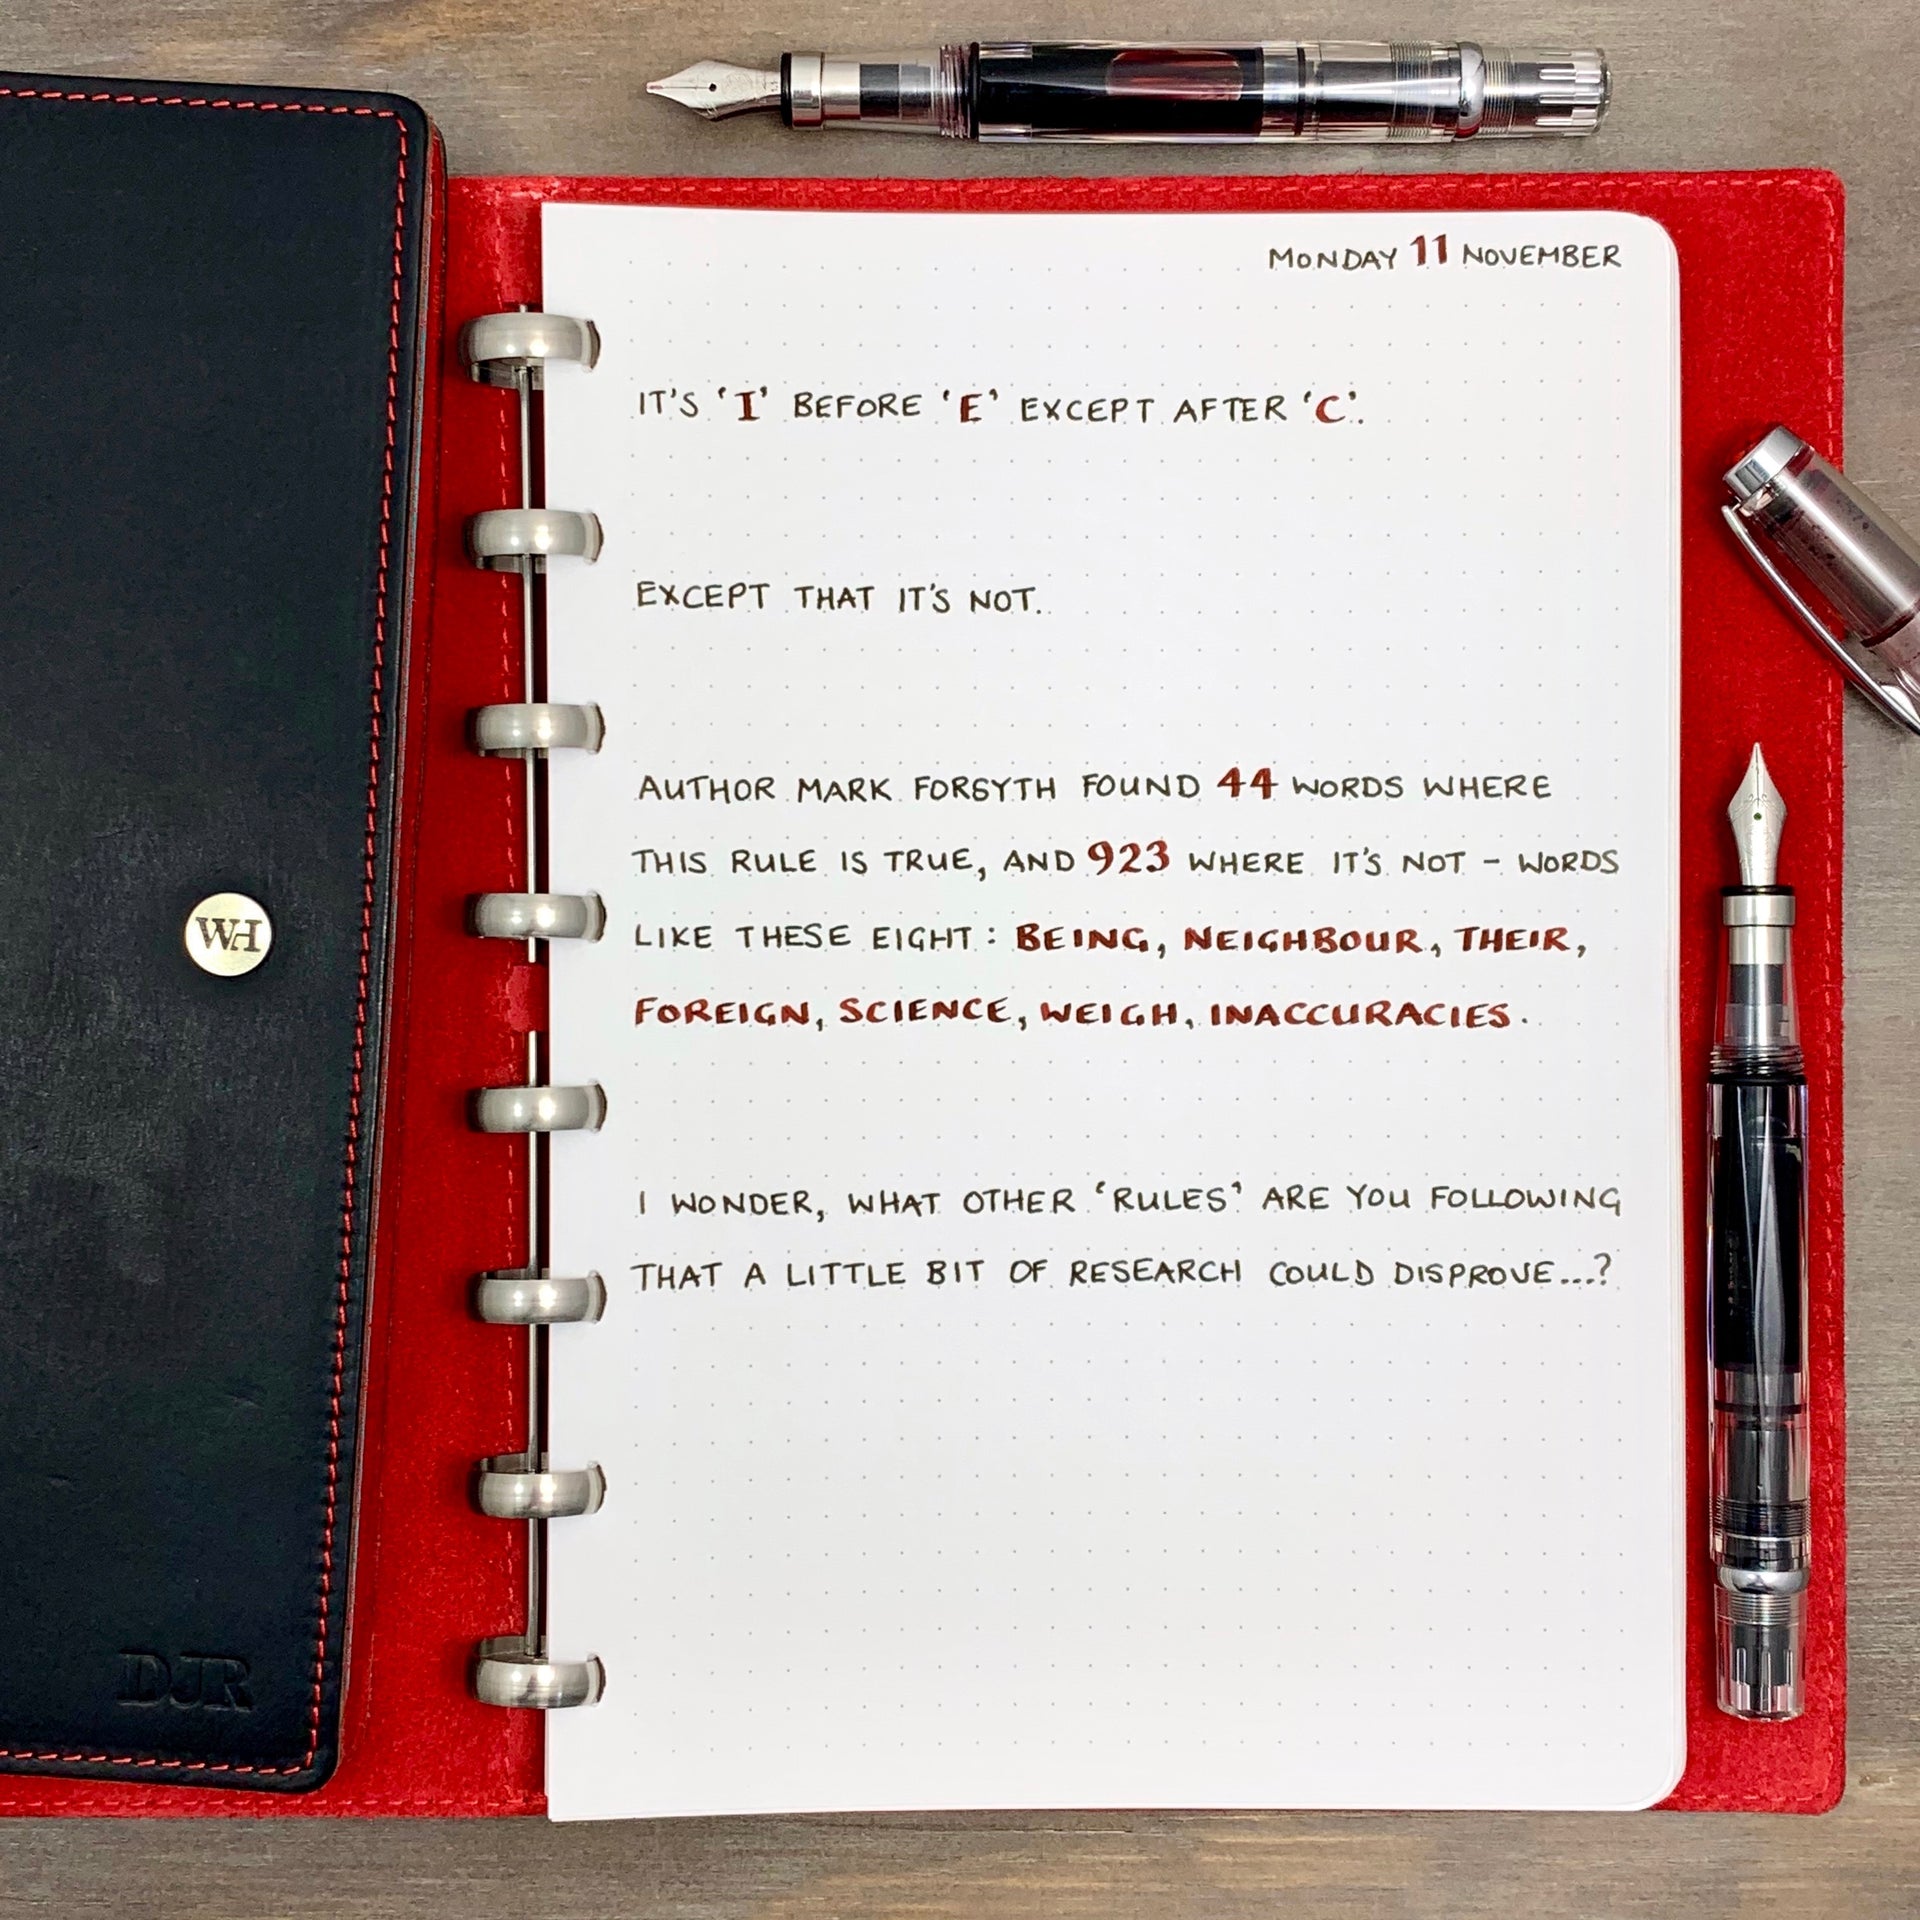 MONDAY 11 NOVEMBER
IT'S 'I' BEFORE 'E' EXCEPT AFTER 'C'.
EXCEPT THAT IT'S NOT.
AUTHOR MARK FORSYTH FOUND 44 WORDS WHERE
THIS RULE IS TRUE, AND 923 WHERE IT'S NOT - WORDS
LIKE THESE EIGHT: BEING, NEIGHBOUR, THEIR,
FOREIGN, SCIENCE, WEIGH, INACCURACIES.
I WONDER, WHAT OTHER 'RULES' ARE YOU FOLLOWING
THAT A LITTLE BIT OF RESEARCH COULD DISPROVE...?
WH
DJR